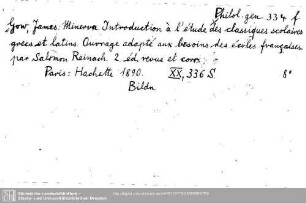 Philol. gen. 334 f
Gow, James: Minerva. Introduction à l'étude des classiques scolaires
grecs et latins. Ouvrage adapté aux besoins des écoles françaises
par Salomon Reinach. 2. éd. revue et corr.
Paris: Hachette 1890. XX, 336 S. 8°
Bildn